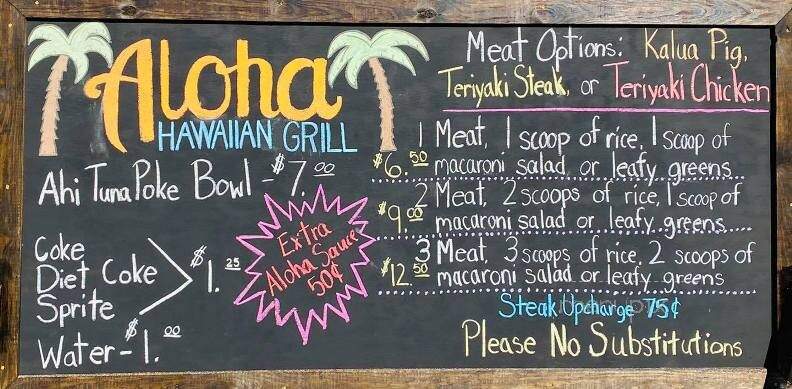 Aloha
HAWAIIAN GRILL
Ahi Tuna Poke Bowl - $7.00
Coke
Diet Coke
Sprite
$1.25
Water - $1.00
Extra
Aloha Sauce
50¢
Meat Options: Kalua Pig,
Teriyaki Steak, or Teriyaki Chicken
1 Meat, 1 scoop of rice, 1 scoop of
$6.50 macaroni salad or leafy greens
2 Meat, 2 scoops of rice, 1 scoop of
$9.00 macaroni salad or leafy greens
3 Meat, 3 scoops of rice, 2 scoops of
$12.50 macaroni salad or leafy greens
Steak Upcharge 75¢
Please No Substitutions